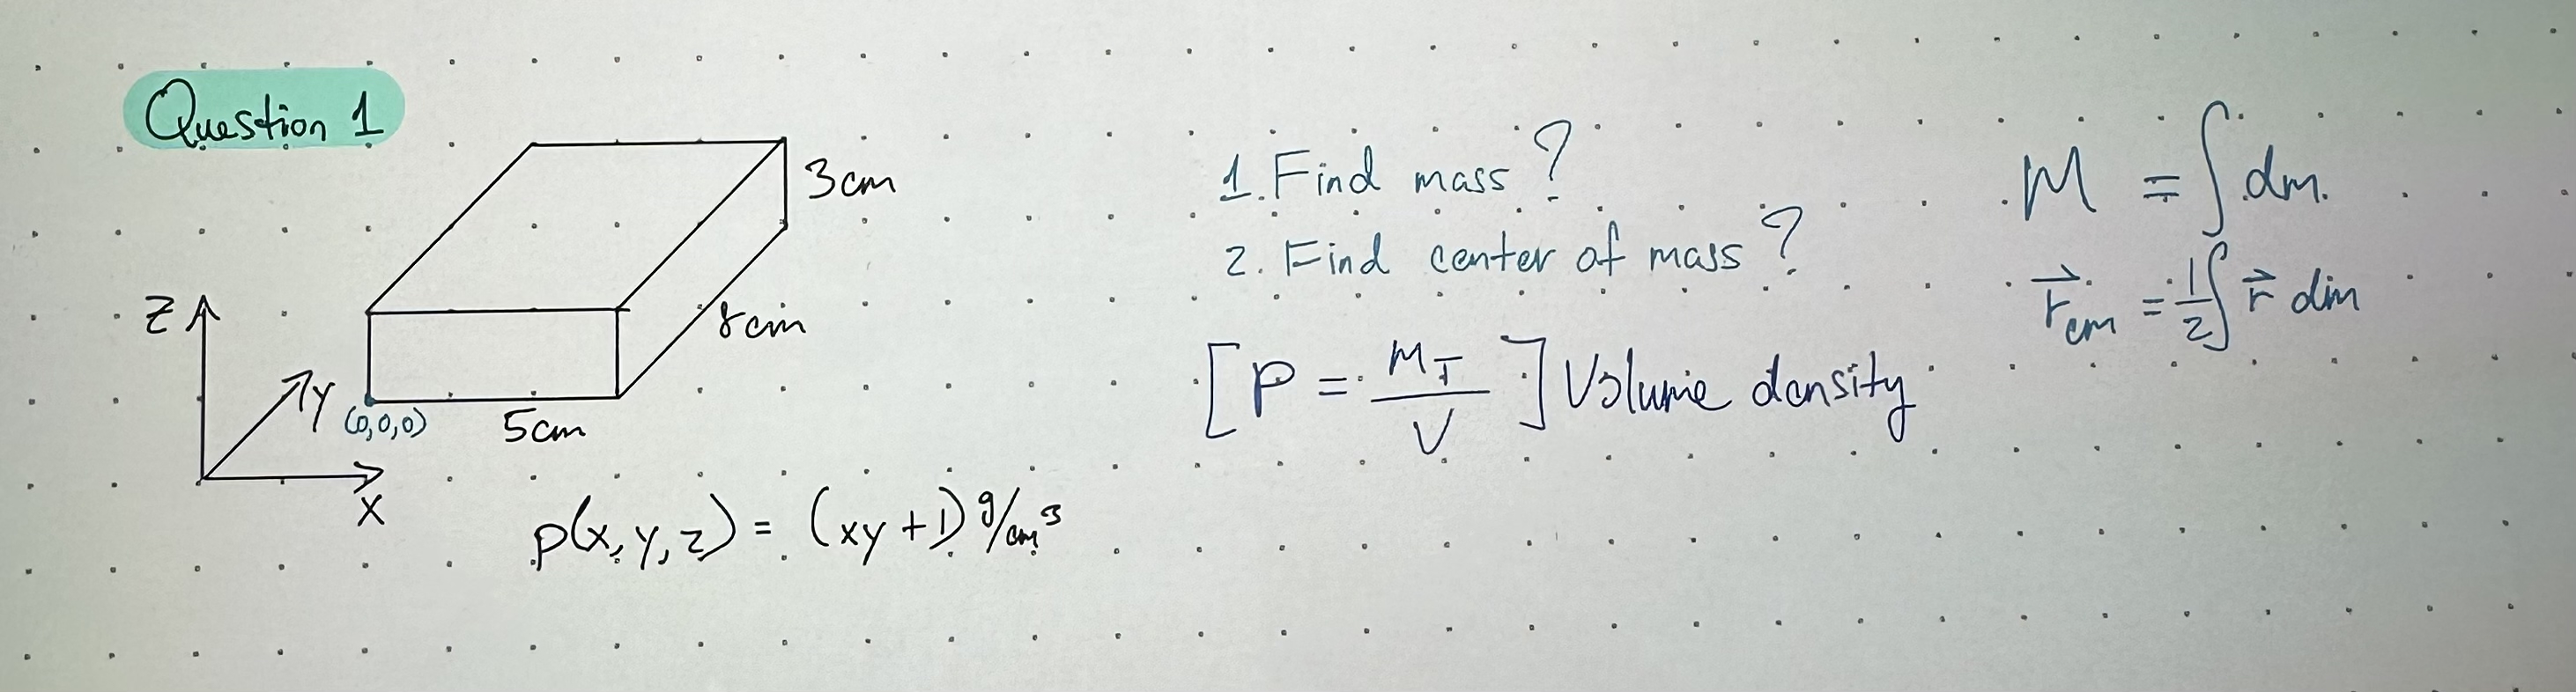 Question 1
3cm
8cm
5cm
Z
Y
X
(0,0,0)
ρ(x, y, z) = (xy + 1) g/cm³
1. Find mass?
2. Find center of mass?
[ρ = M_T / V] Volume density
M = ∫ dm
r⃗_cm = 1/2 ∫ r⃗ dm